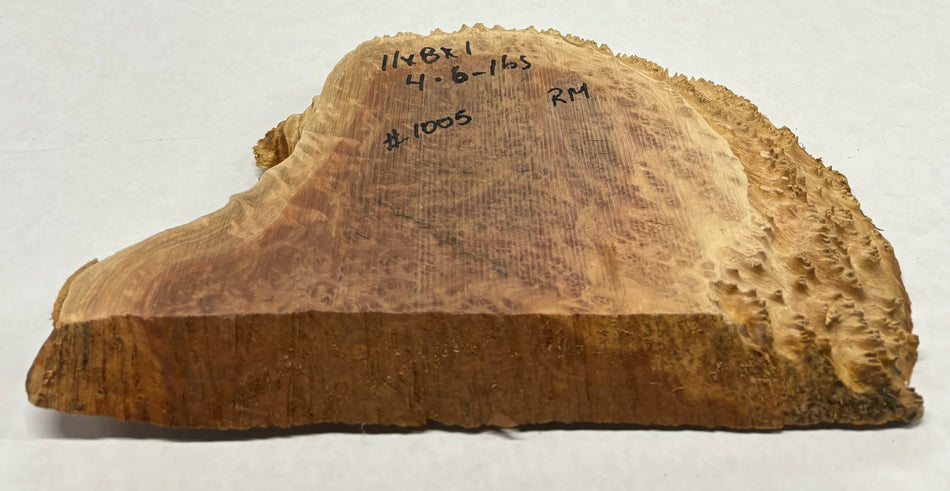 11x8x1
4.6-lbs
RM
#1005